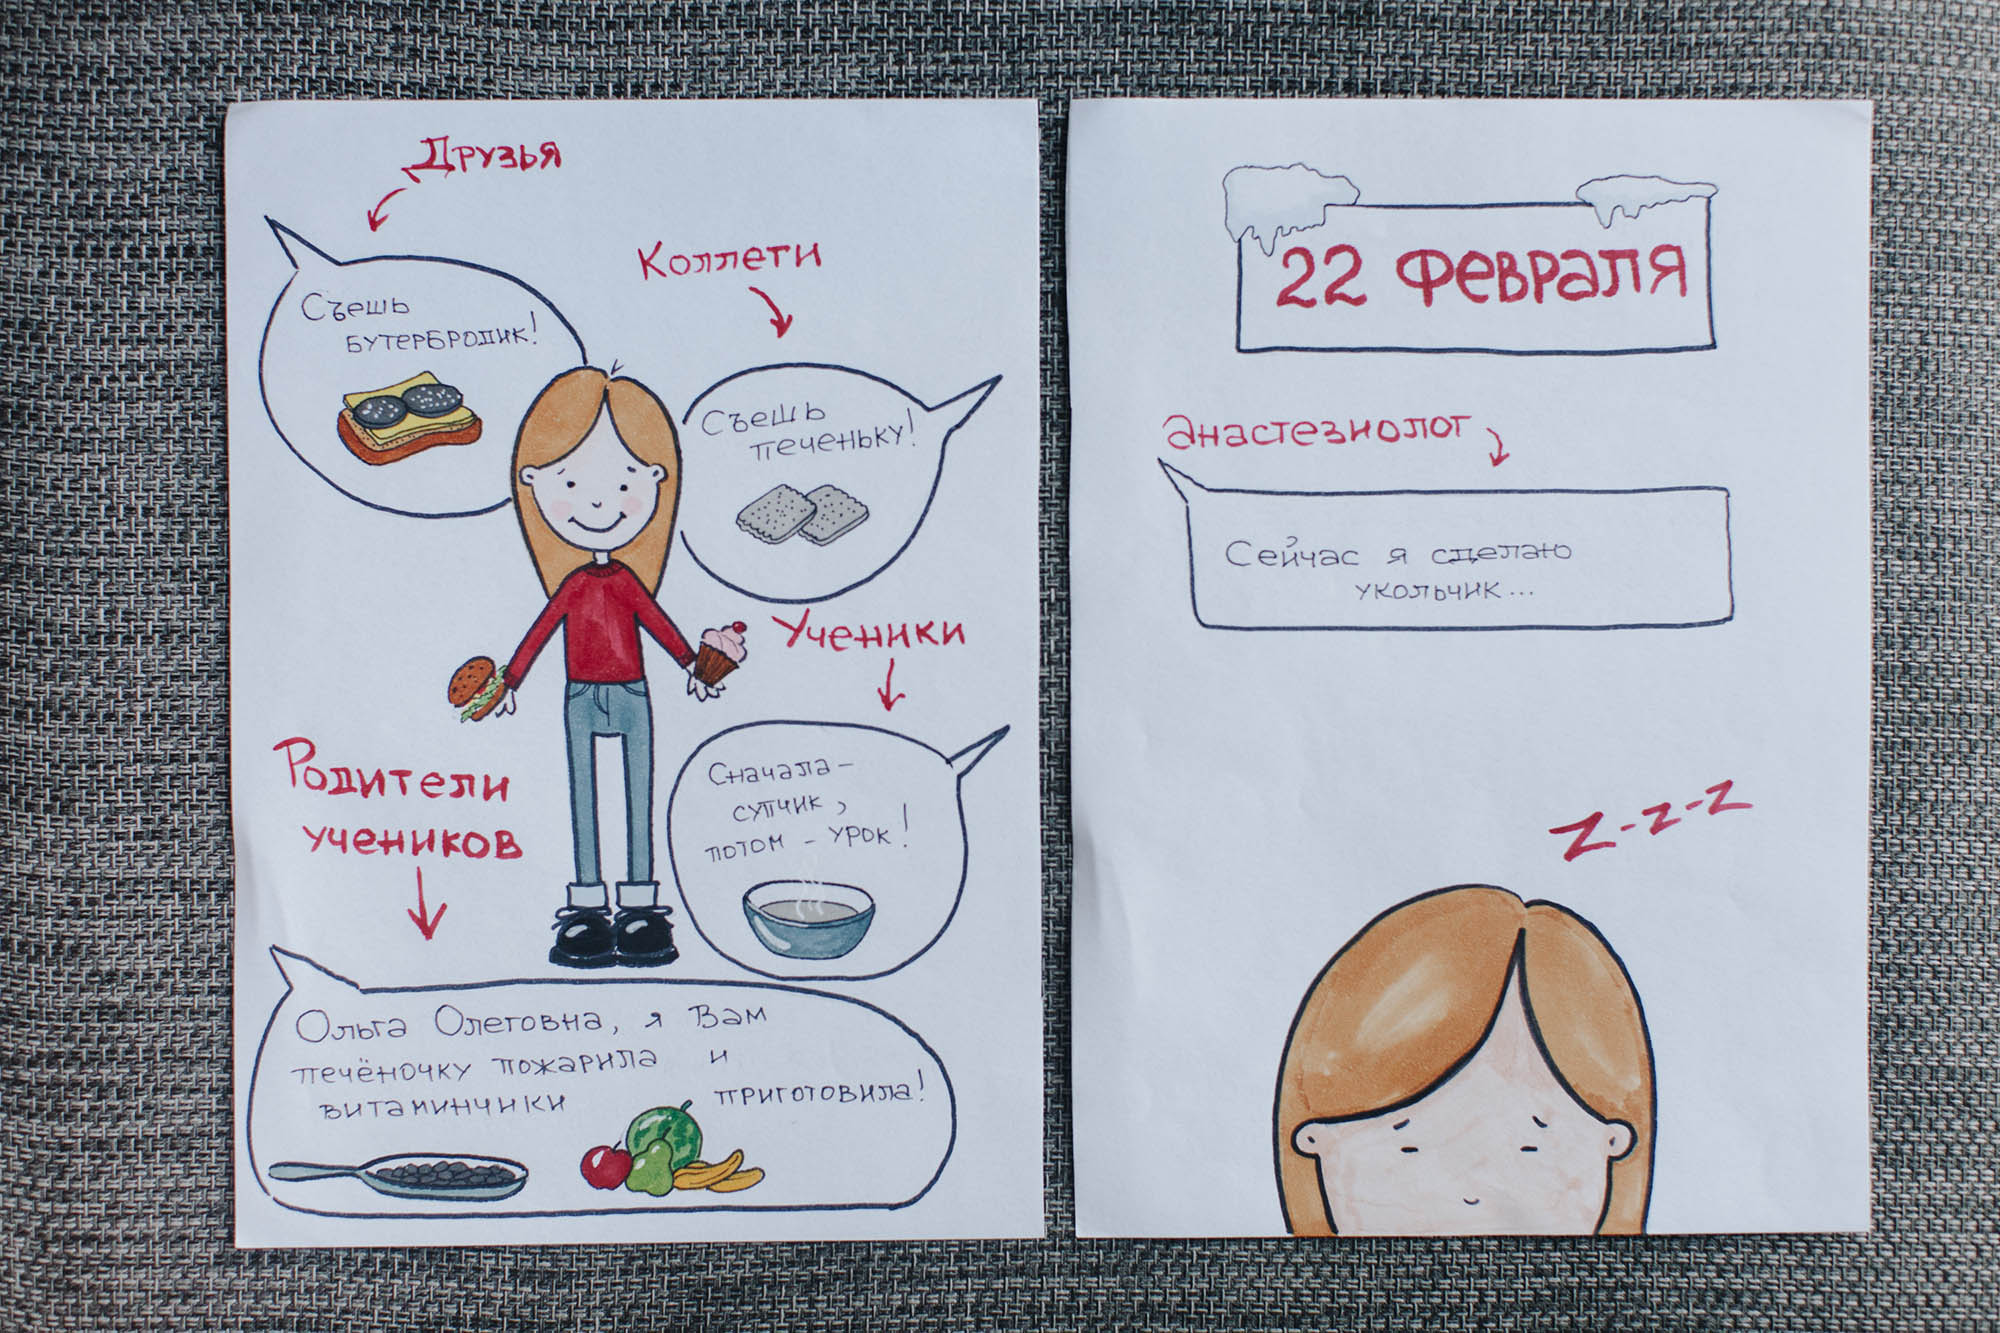 Друзья
Съешь
бутербродик!
Коллеги
Съешь
печеньку!
Ученики
Сначала –
супчик,
потом – урок!
Родители
учеников
Ольга Олеговна, я Вам
печёночку пожарила и
витаминчики приготовила!
22 февраля
Анастезиолог
Сейчас я сделаю
укольчик...
Z-z-z